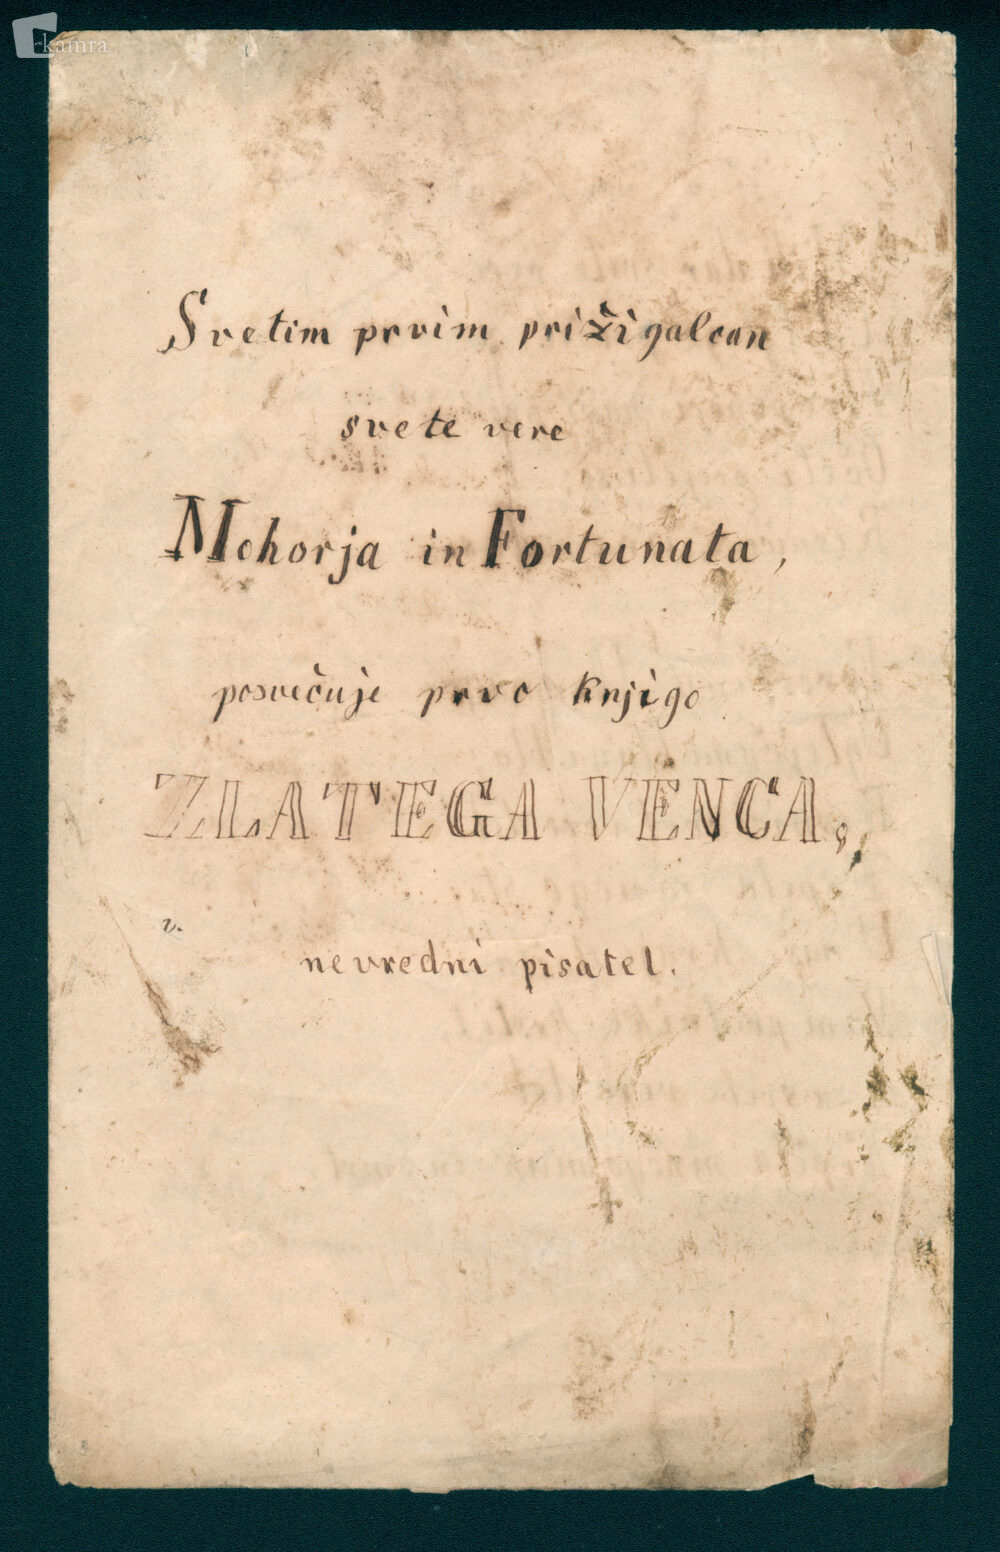 kamra
Svetim prvim prižigalcan
svete vere
Mohorja in Fortunata,
posvečuje prvo knjigo
ZLATEGA VENCA,
v.
nevredni pisatel.